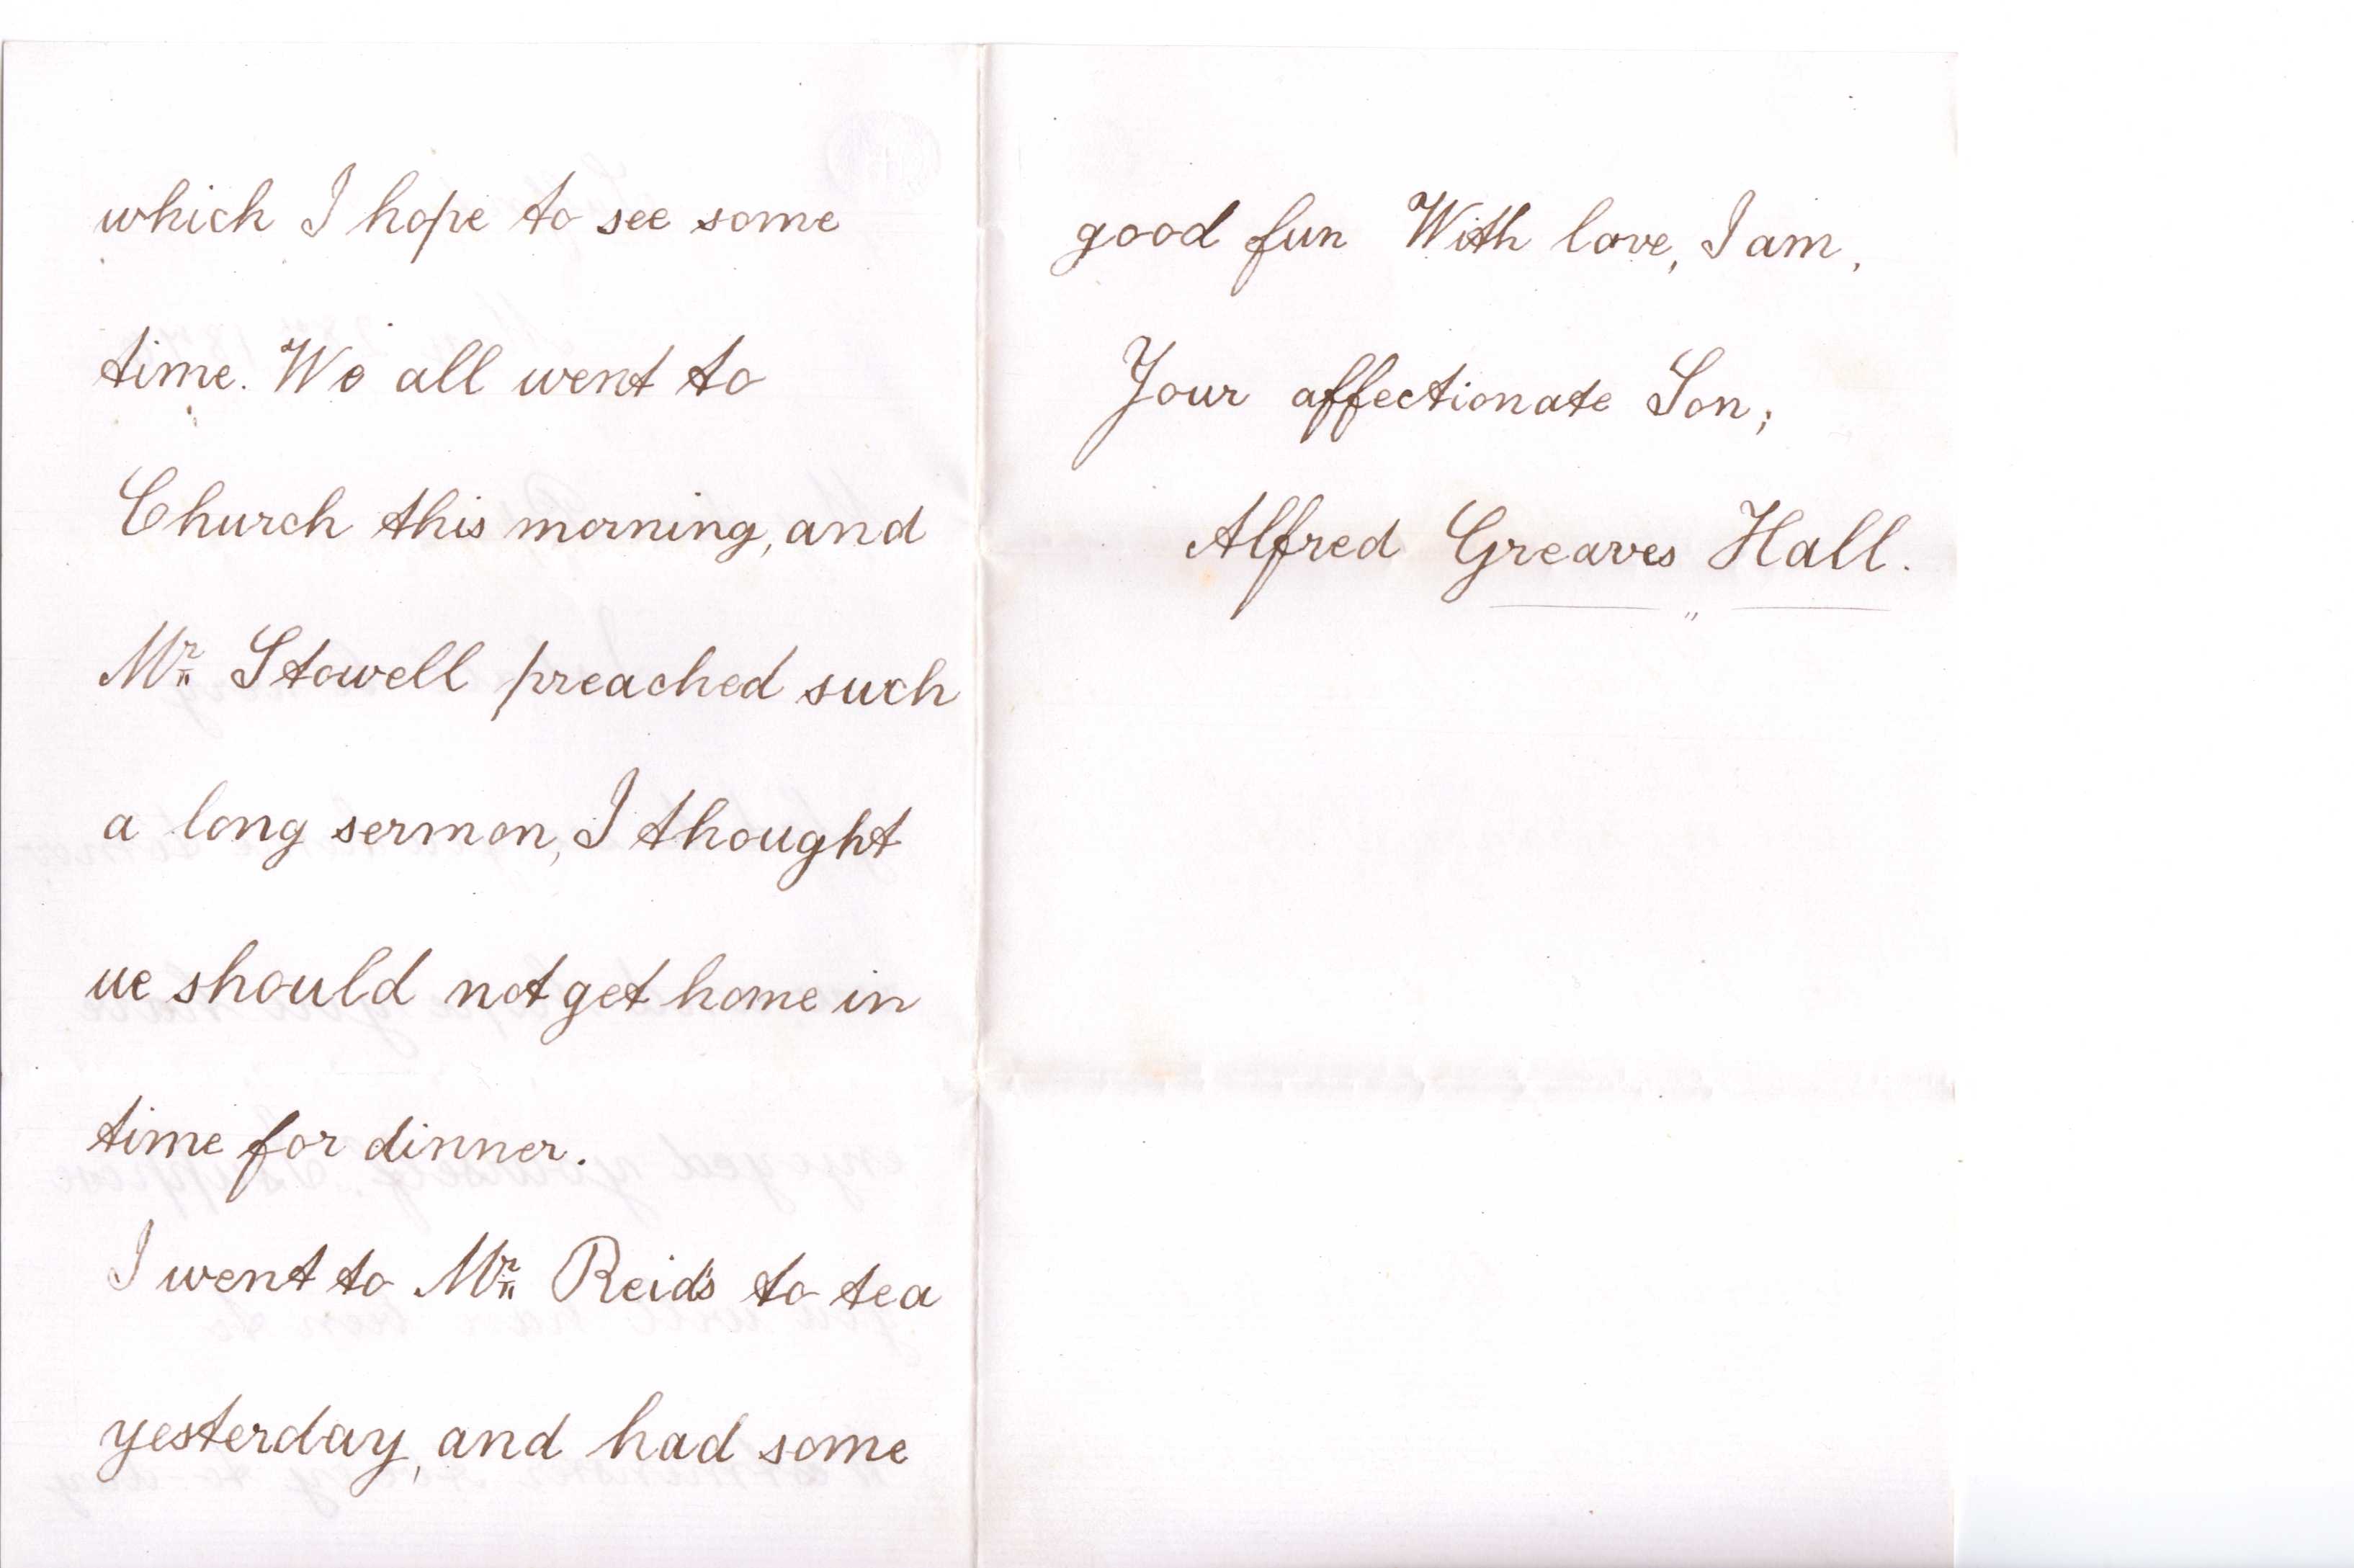 which I hope to see some
time. We all went to
Church this morning, and
Mr. Stowell preached such
a long sermon, I thought
we should not get home in
time for dinner.
I went to Mr. Reid's to tea
yesterday, and had some
good fun With love, I am,
Your affectionate Son,
Alfred Greaves Hall.